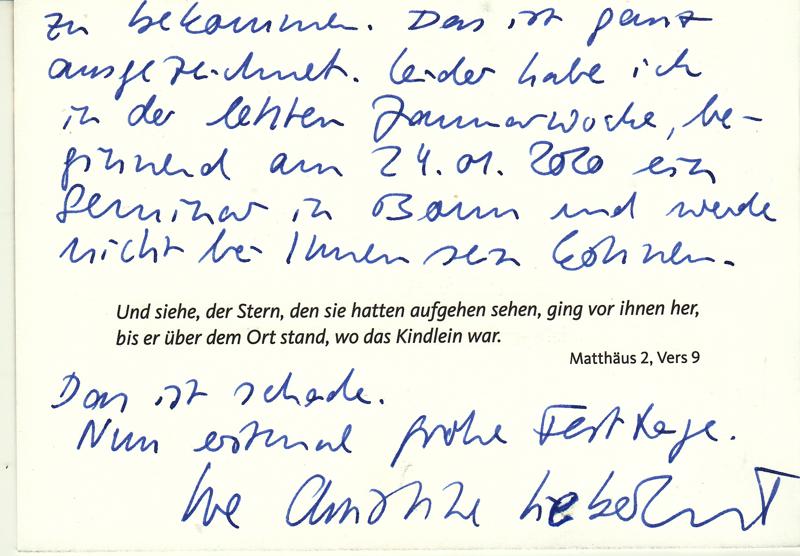 zu bekommen. Das ist ganz
ausgezeichnet. Leider habe ich
in der letzten Januarwoche, be-
ginnend am 24.01.2020 ein
Seminar in Bonn und werde
nicht bei Ihnen sein können.
Und siehe, der Stern, den sie hatten aufgehen sehen, ging vor ihnen her,
bis er über dem Ort stand, wo das Kindlein war.
Matthäus 2, Vers 9
Das ist schade.
Nun erstmal frohe Festtage.
Ihre Christine